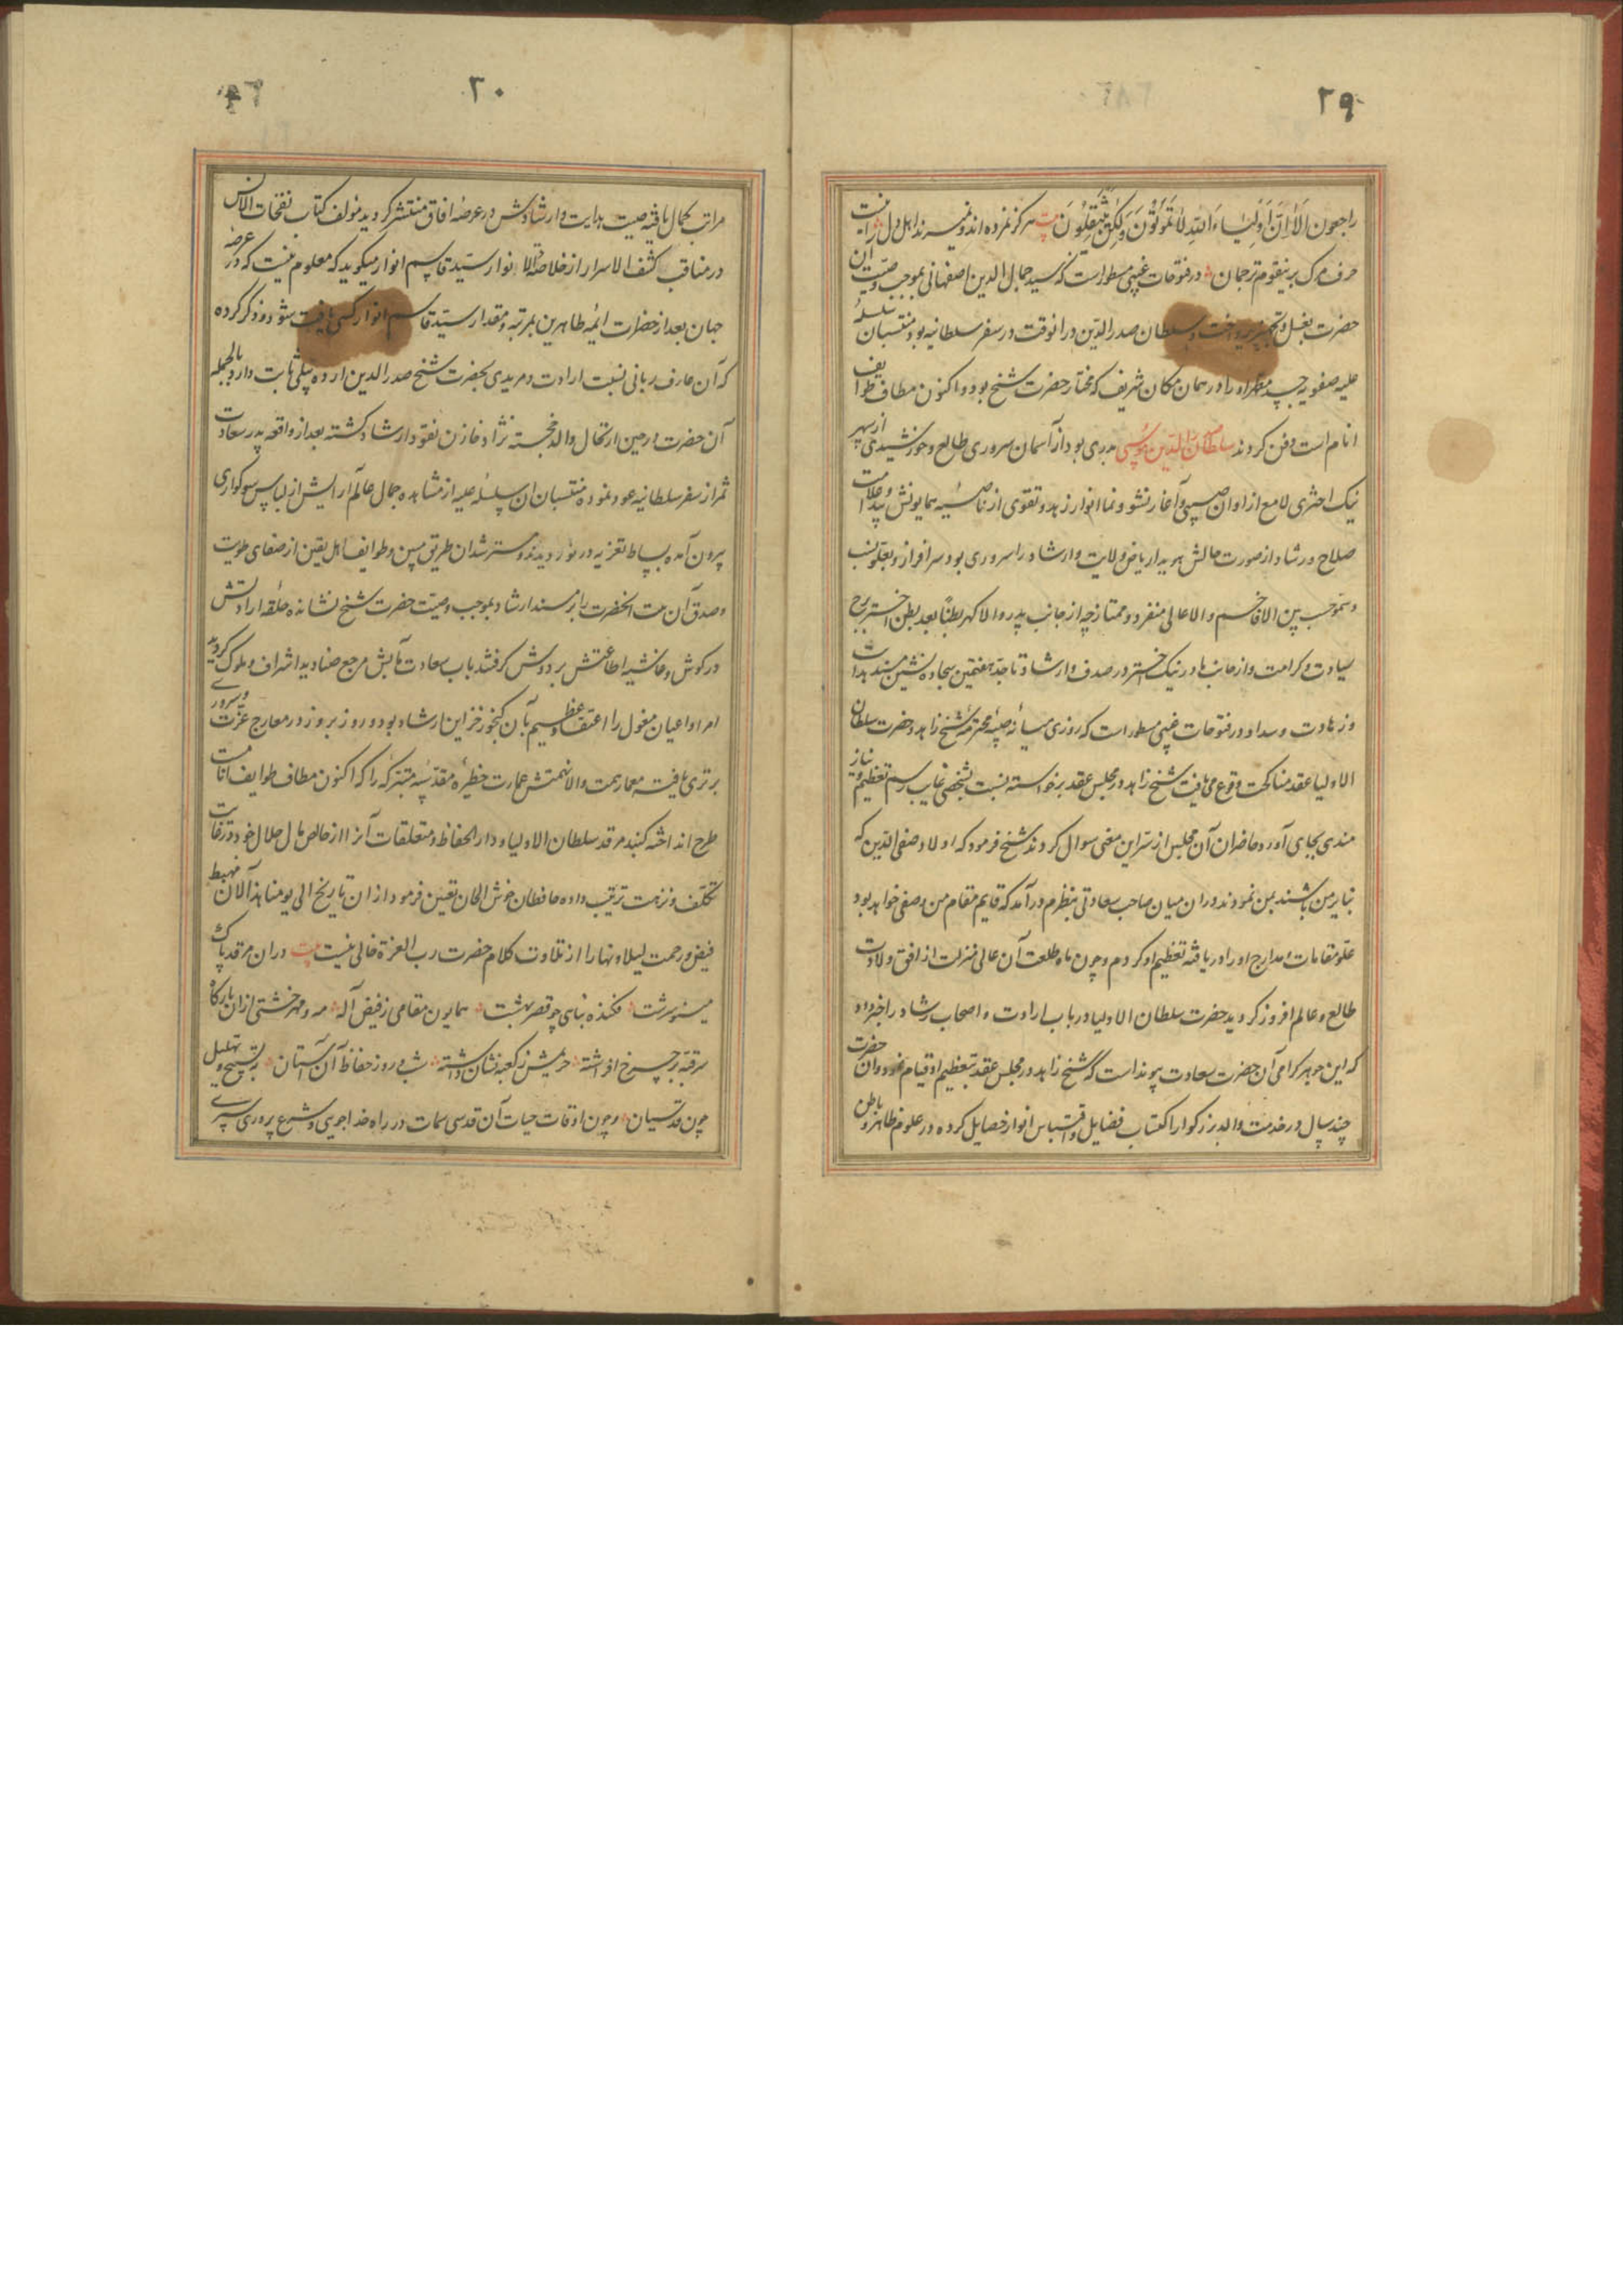 ۲۹
راجعون الا ان اولیاء الله لا یموتون ولکن ینتقلون بیت هرگز نمرده‌اند و نمیرند اهل دل
حرف مرک بر ینقوم ترجمان در فتوحات غیبی مسطور است که سید جمال الدین اصفهانی بموجب وصیت آن
حضرت بغسل و تجهیز پرداخت و سلطان صدرالدین درانوقت در سفر سلطانیه بود و منتسبان سلسلهٔ
علیه صفویه جسد مطهر او را در همان مکان شریف که مختار حضرت شیخ بود و اکنون مطاف طوایف
انام است دفن کردند سلطان صدر الدین موسی بدری بود از آسمان سروری طالع و خورشیدی از سپهر
نیک اختری لامع از اوان صبی و آغاز نشو و نما انوار زهد و تقوی از ناصیهٔ همایونش پیدا و علامت
صلاح و رشاد از صورت حالش هویدا ریاض ولایت و ارشاد را سروری بود سرافراز و بعلو نسب
و سمو حسب بین الافاخم والاعالی منفرد و ممتاز چه از جانب پدر والا کهر بطنا بعد بطن اختر برج
سیادت و کرامت و از جانب مادر نیک اختر در صدف ارشاد تا جد هفتمین سجاده نشین مسند هدایت
و زهادت و سداد و در فتوحات غیبی مسطور است که روزی میانهٔ صبیهٔ محترمهٔ شیخ زاهد و حضرت سلطان
الاولیا عقد مناکحت وقوع می‌یافت شیخ زاهد در مجلس عقد برخواسته نسبت بشخصی غایب رسم تعظیم و نیاز
مندی بجای آورد حاضران آن مجلس از سر این معنی سوال کردند شیخ فرمود که اولاد صفی الدین که
نبایر من باشند بمن نمودند در ان میان صاحب سعادتی بنظرم درآمد که قایم مقام من و صفی خواهد بود
علو مقامات و مدارج او را دریافته تعظیم او کردم و چون ماه طلعت آن عالی منزلت از افق ولادت
طالع و عالم افروز کردید حضرت سلطان الاولیا ارباب ارادت و اصحاب رشاد را خبر داد
که این جوهر کرامی آن حضرت سعادت پیوند است که شیخ زاهد در مجلس عقد بتعظیم او قیام نمود و آن حضرت
چند سال در خدمت والد بزرکوار اکتساب فضایل و اقتباس انوار خصایل کرده در علوم ظاهر و باطن
۳۰
مراتب کمال یافته صیت هدایت و ارشادش در عرصهٔ افاق منتشر کردید مولف کتاب نفحات الانس
در مناقب کشف الاسرار از خلاصة الانوار سید قاسم انوار میکوید که معلوم نیست که در عرصه
جهان بعد از حضرات ائمهٔ طاهرین بمرتبه و مقدار سید قاسم انوار کسی یافت شود و ذکر کرده
که آن عارف ربانی نسبت ارادت و مریدی بحضرت شیخ صدر الدین اردبیلی ثابت دارد بالجمله
آن حضرت در حین ارتحال والد خجسته نژاد خازن نقود ارشاد کشته بعد از واقعه پدر سعادت
ثمر از سفر سلطانیه عود نموده منتسبان ان سلسله علیه از مشاهده جمال عالم آرایش از لباس سوکواری
بیرون آمده بساط تعزیه در نوردیدند و مسترشدان طریق مبین و طوایف اهل یقین از صفای طویت
و صدق نیت آن حضرت را بر مسند ارشاد بموجب وصیت حضرت شیخ نشانده حلقه ارادتش
در کوش و غاشیه اطاعتش بر دوش کرفتند باب سعادت مآبش مرجع صنادید اشراف و ملوک کردید
امرا و اعیان مغول را اعتقاد عظیم بآن کنجور خزاین ارشاد بود و روز بروز در معارج عزت و سروری
برتری یافت معمار همت والانهمتش عمارت حظیرهٔ مقدسهٔ متبرکه را که اکنون مطاف طوایف انامست
طرح انداخته کنبد مرقد سلطان الاولیا و دار الحفاظ و متعلقات آنرا از خالص مال حلال خود در غایت
تکلف و زینت ترتیب داده حافظان خوش الحان تعیین فرمود از ان تاریخ الی یومنا هذا آن مهبط
فیض و رحمت لیلا و نهارا از تلاوت کلام حضرت رب العزة خالی نیست بیت در ان مرقد پاک
مینو سرشت فکنده بنای چو قصر بهشت همایون مقامی ز فیض آله مه و مهر خشتی ازان بارکاه
سر قبه بر چرخ افراشته حریمش ز کعبه نشان داشته شب و روز حفاظ آن آستان به تسبیح و تهلیل
چون قدسیان و چون اوقات حیات آن قدسی سمات در راه خدا جویی و شرع پروری سپری